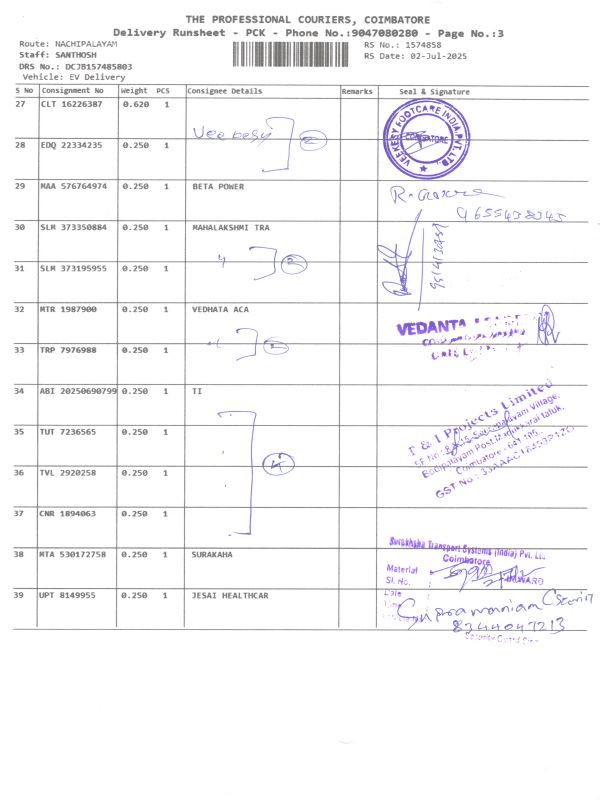 THE PROFESSIONAL COURIERS, COIMBATORE
Delivery Runsheet - PCK - Phone No.:9047080280 - Page No.:3
Route: NACHIPALAYAM
RS No.: 1574858
Staff: SANTHOSH
RS Date: 02-Jul-2025
DRS No.: DCJB157485803
Vehicle: EV Delivery
S No Consignment No Weight PCS Consignee Details Remarks Seal & Signature
27 CLT 16226387 0.620 1
VEEKESY FOOTCARE INDIA PVT. LTD.
COIMBATORE
2
28 EDQ 22334235 0.250 1
29 MAA 576764974 0.250 1 BETA POWER
9655438345
30 SLM 373350884 0.250 1 MAHALAKSHMI TRA
" 2
31 SLM 373195955 0.250 1
32 MTR 1987900 0.250 1 VEDHATA ACA
VEDANTA
" 2
33 TRP 7976988 0.250 1
34 ABI 20250690799 0.250 1 TI
T & I Projects Limited
Coimbatore - 641 105.
35 TUT 7236565 0.250 1
4
36 TVL 2920258 0.250 1
37 CNR 1894063 0.250 1
38 MTA 530172758 0.250 1 SURAKAHA
Surakhsha Transport Systems (India) Pvt. Lt.
Coimbatore
Material :
Sl. No. : INWARD
39 UPT 8149955 0.250 1 JESAI HEALTHCAR
Date :
8344047213